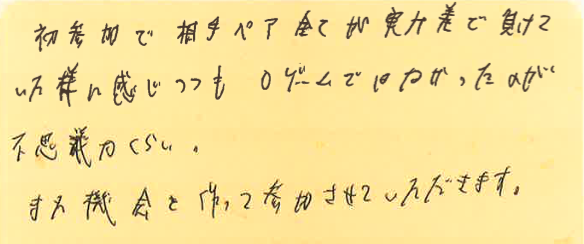 初参加で相手ペア全てが実力差で負けて
いた様に感じつつも 0ゲームではなかったのが
不思議なくらい。
また機会を作って参加させていただきます。